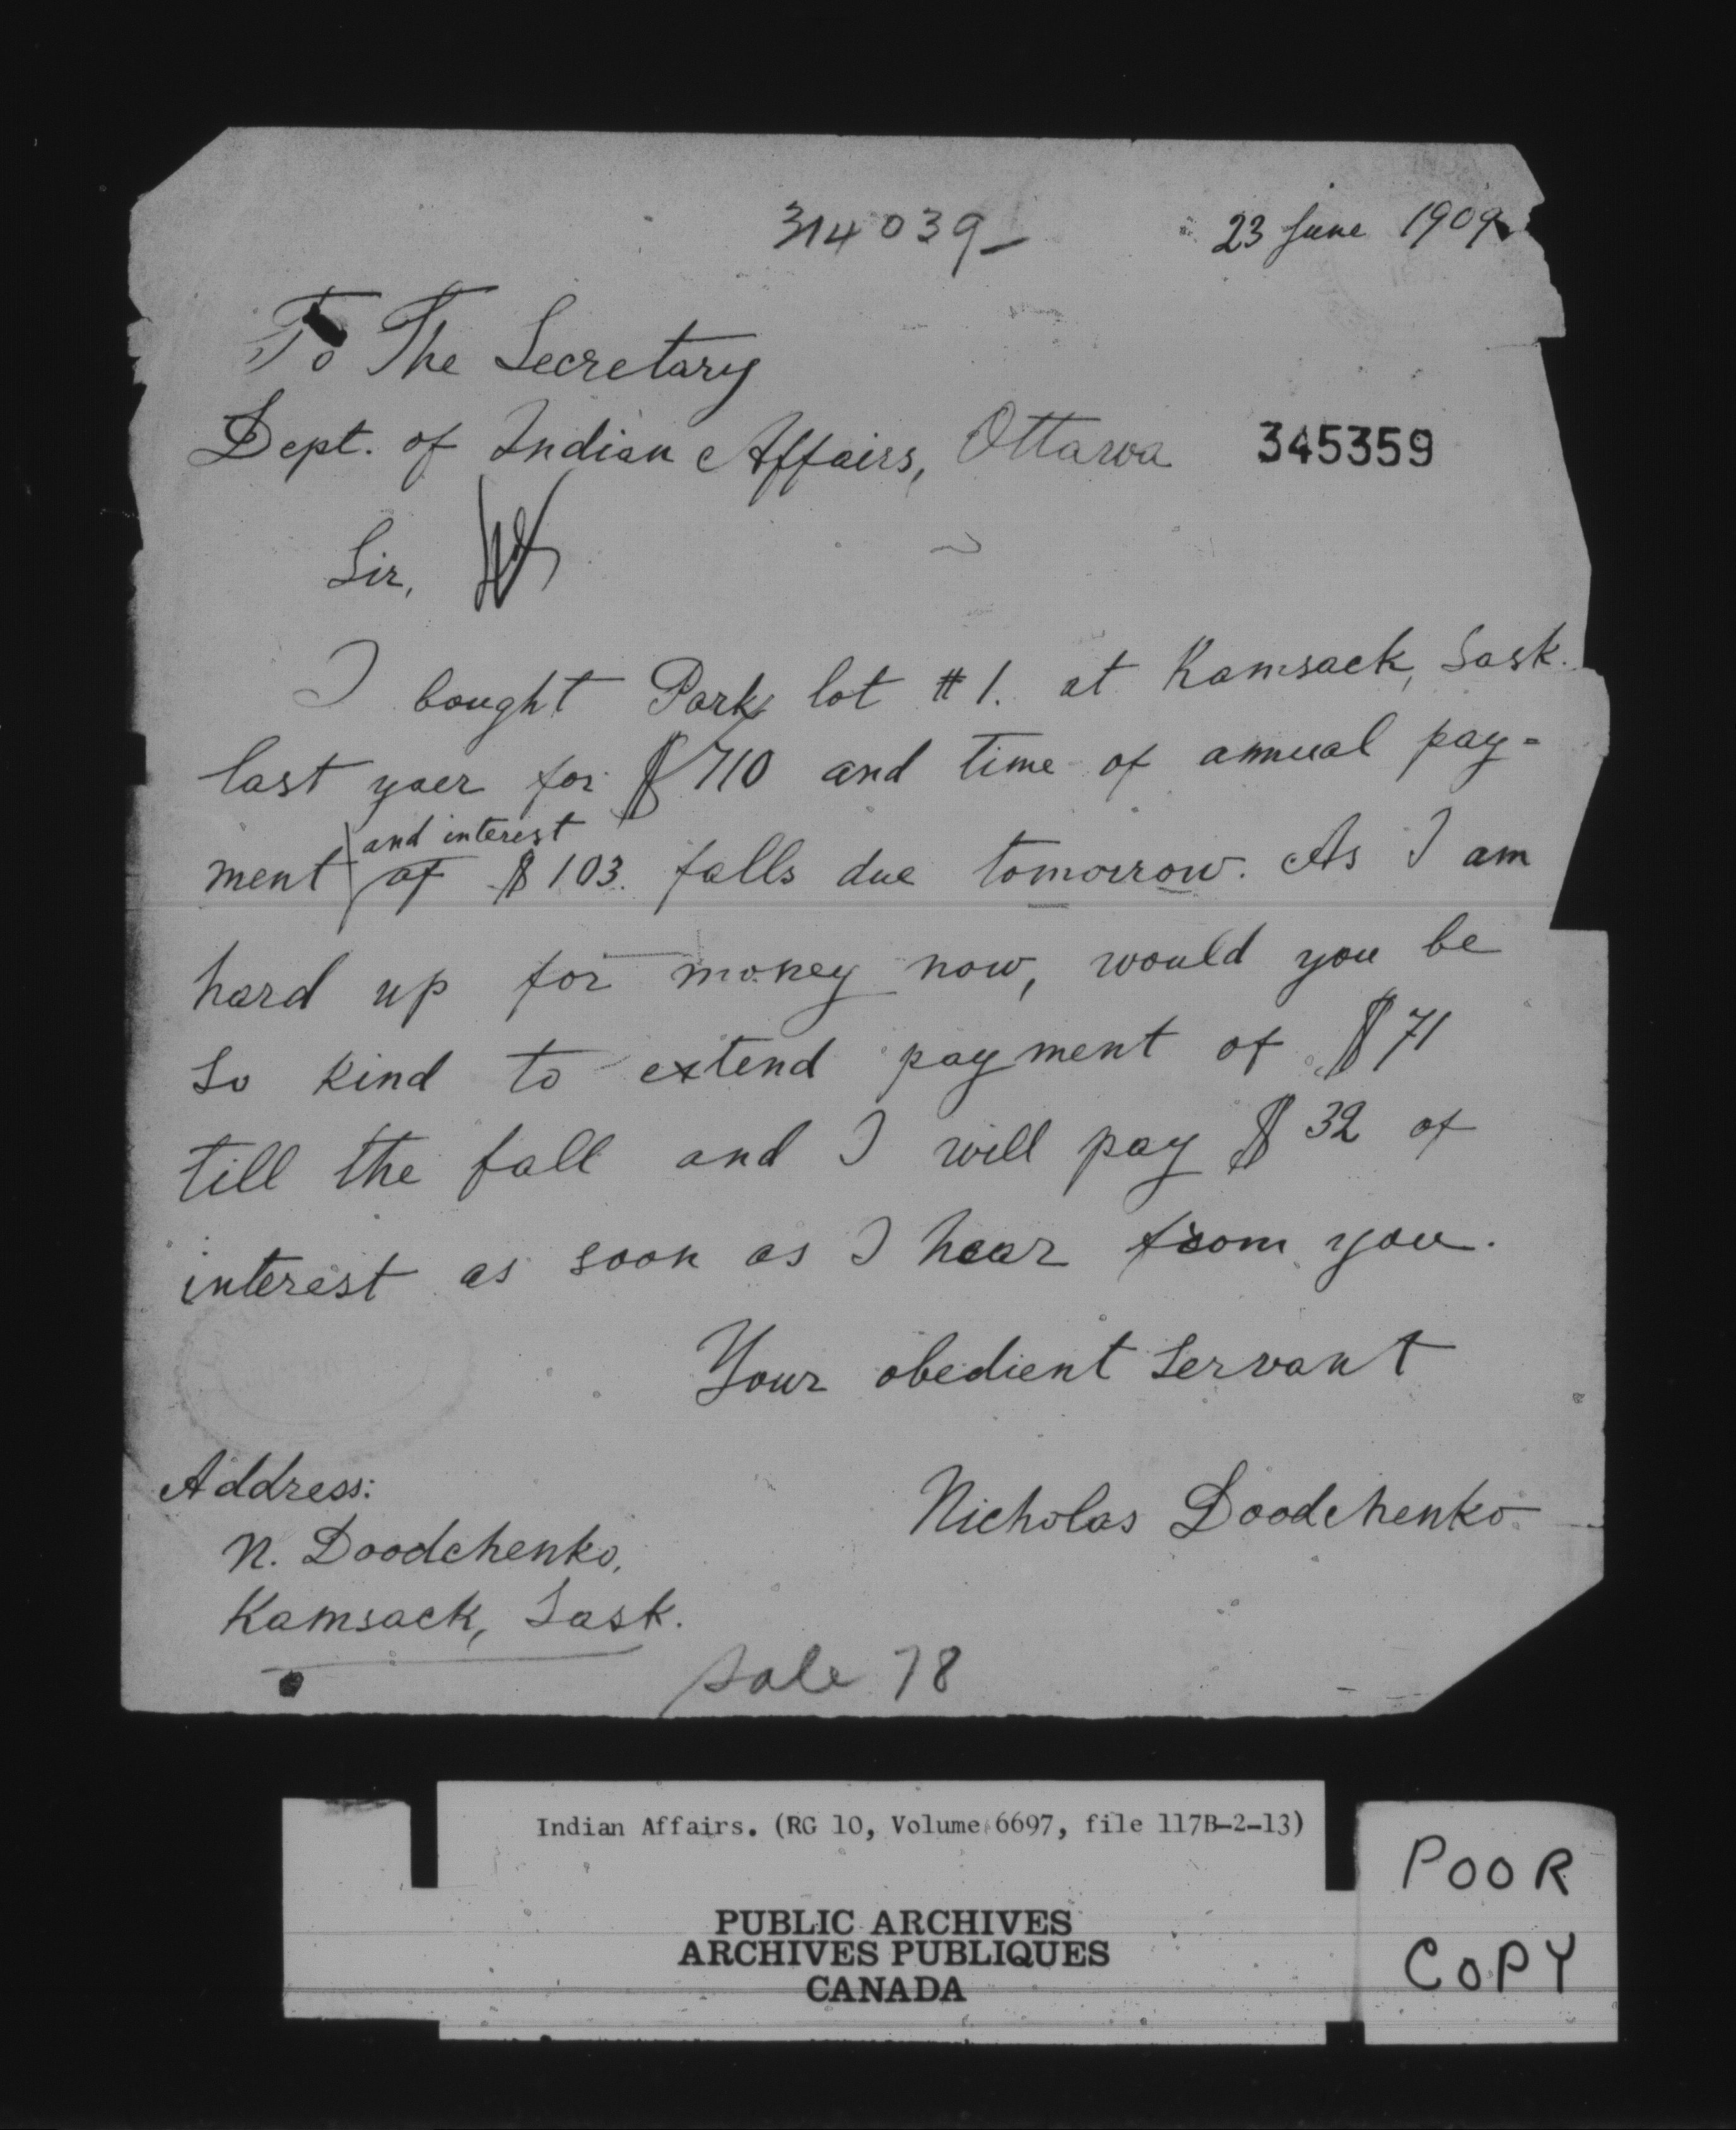 314039
23 June 1909
To The Secretary
Dept. of Indian Affairs, Ottawa 345359
Sir,
I bought Park lot #1. at Kamsack, Sask.
last yaer for $710 and time of annual pay=
and interest
ment of $103. falls due tomorrow. As I am
hard up for money now, would you be
so kind to extend payment of $71
till the fall and I will pay $32 of
interest as soon as I hear from you.
Your obedient servant
Nicholas Doodchenko
Address:
N. Doodchenko,
Kamsack, Sask.
Sale 78
Indian Affairs. (RG 10, Volume 6697, file 117B-2-13)
PUBLIC ARCHIVES
ARCHIVES PUBLIQUES
CANADA
POOR
COPY